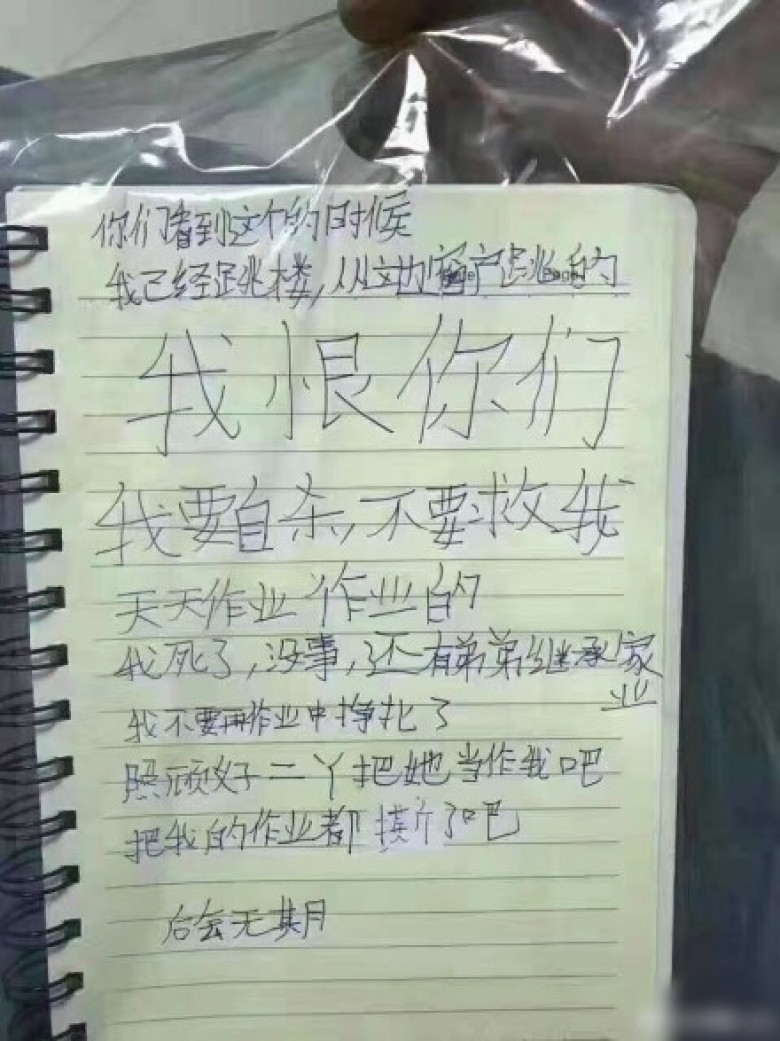 你们看到这个的时候
我已经跳楼,从这边窗户跳的
我恨你们
我要自杀,不要救我
天天作业作业的
我死了,没事,还有弟弟继承家
业
我不要再作业中挣扎了
照顾好二丫把她当作我吧
把我的作业都 了吧
后会无期